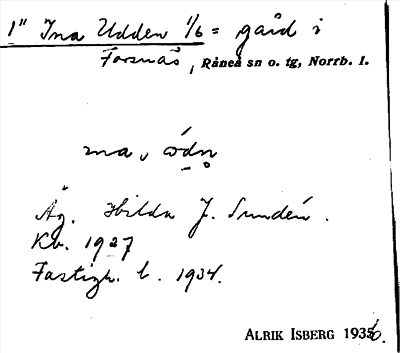 1" Ina Udden 1/6 = gård i
Forsnäs, Råneå sn o. tg, Norrb. l.
Äg. Hilda J. Sundén.
Kv. 1927
Fastigh. l. 1934.
ALRIK ISBERG 1935